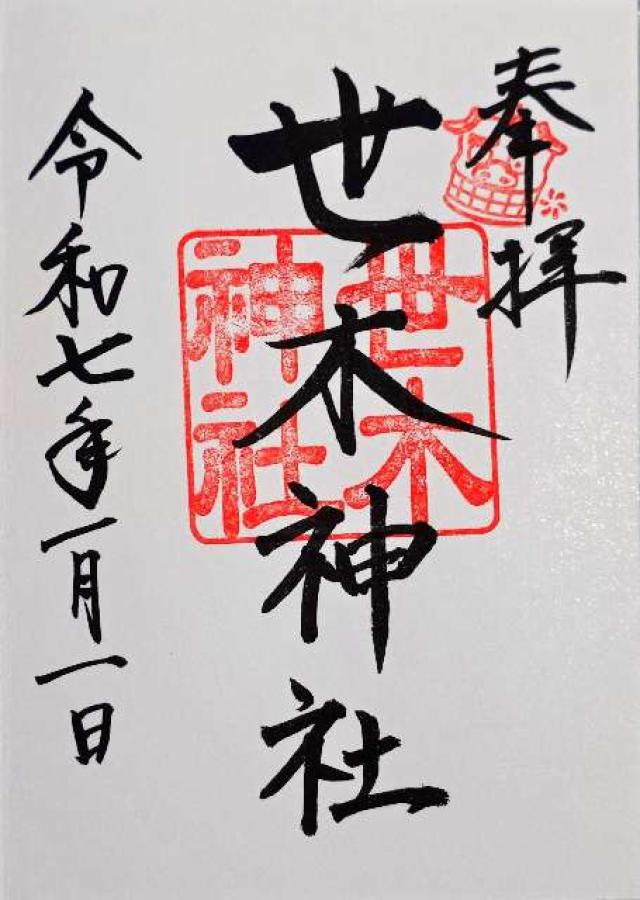 奉拝
世木神社
世木
神社
令和七年一月一日